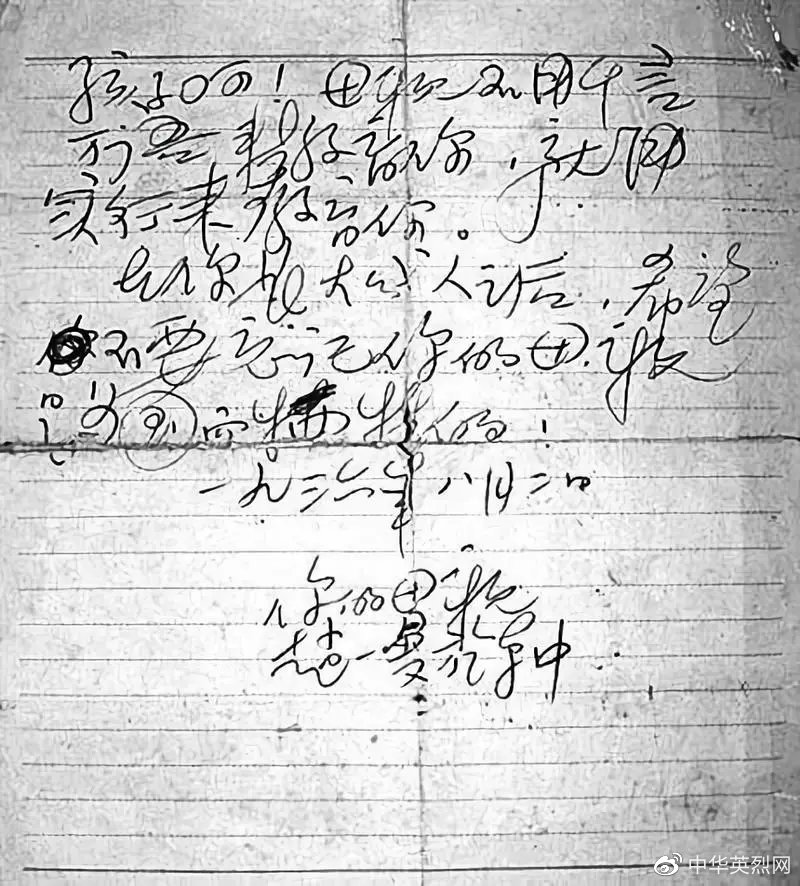 孩子呵！母亲不用千言
万语来教育你，就用
实行来教育你。
在你长大成人之后，希望
不要忘记你的母亲
是为国而牺牲的！
一九三六年八月二日
你的母亲
赵一曼于车中
中华英烈网